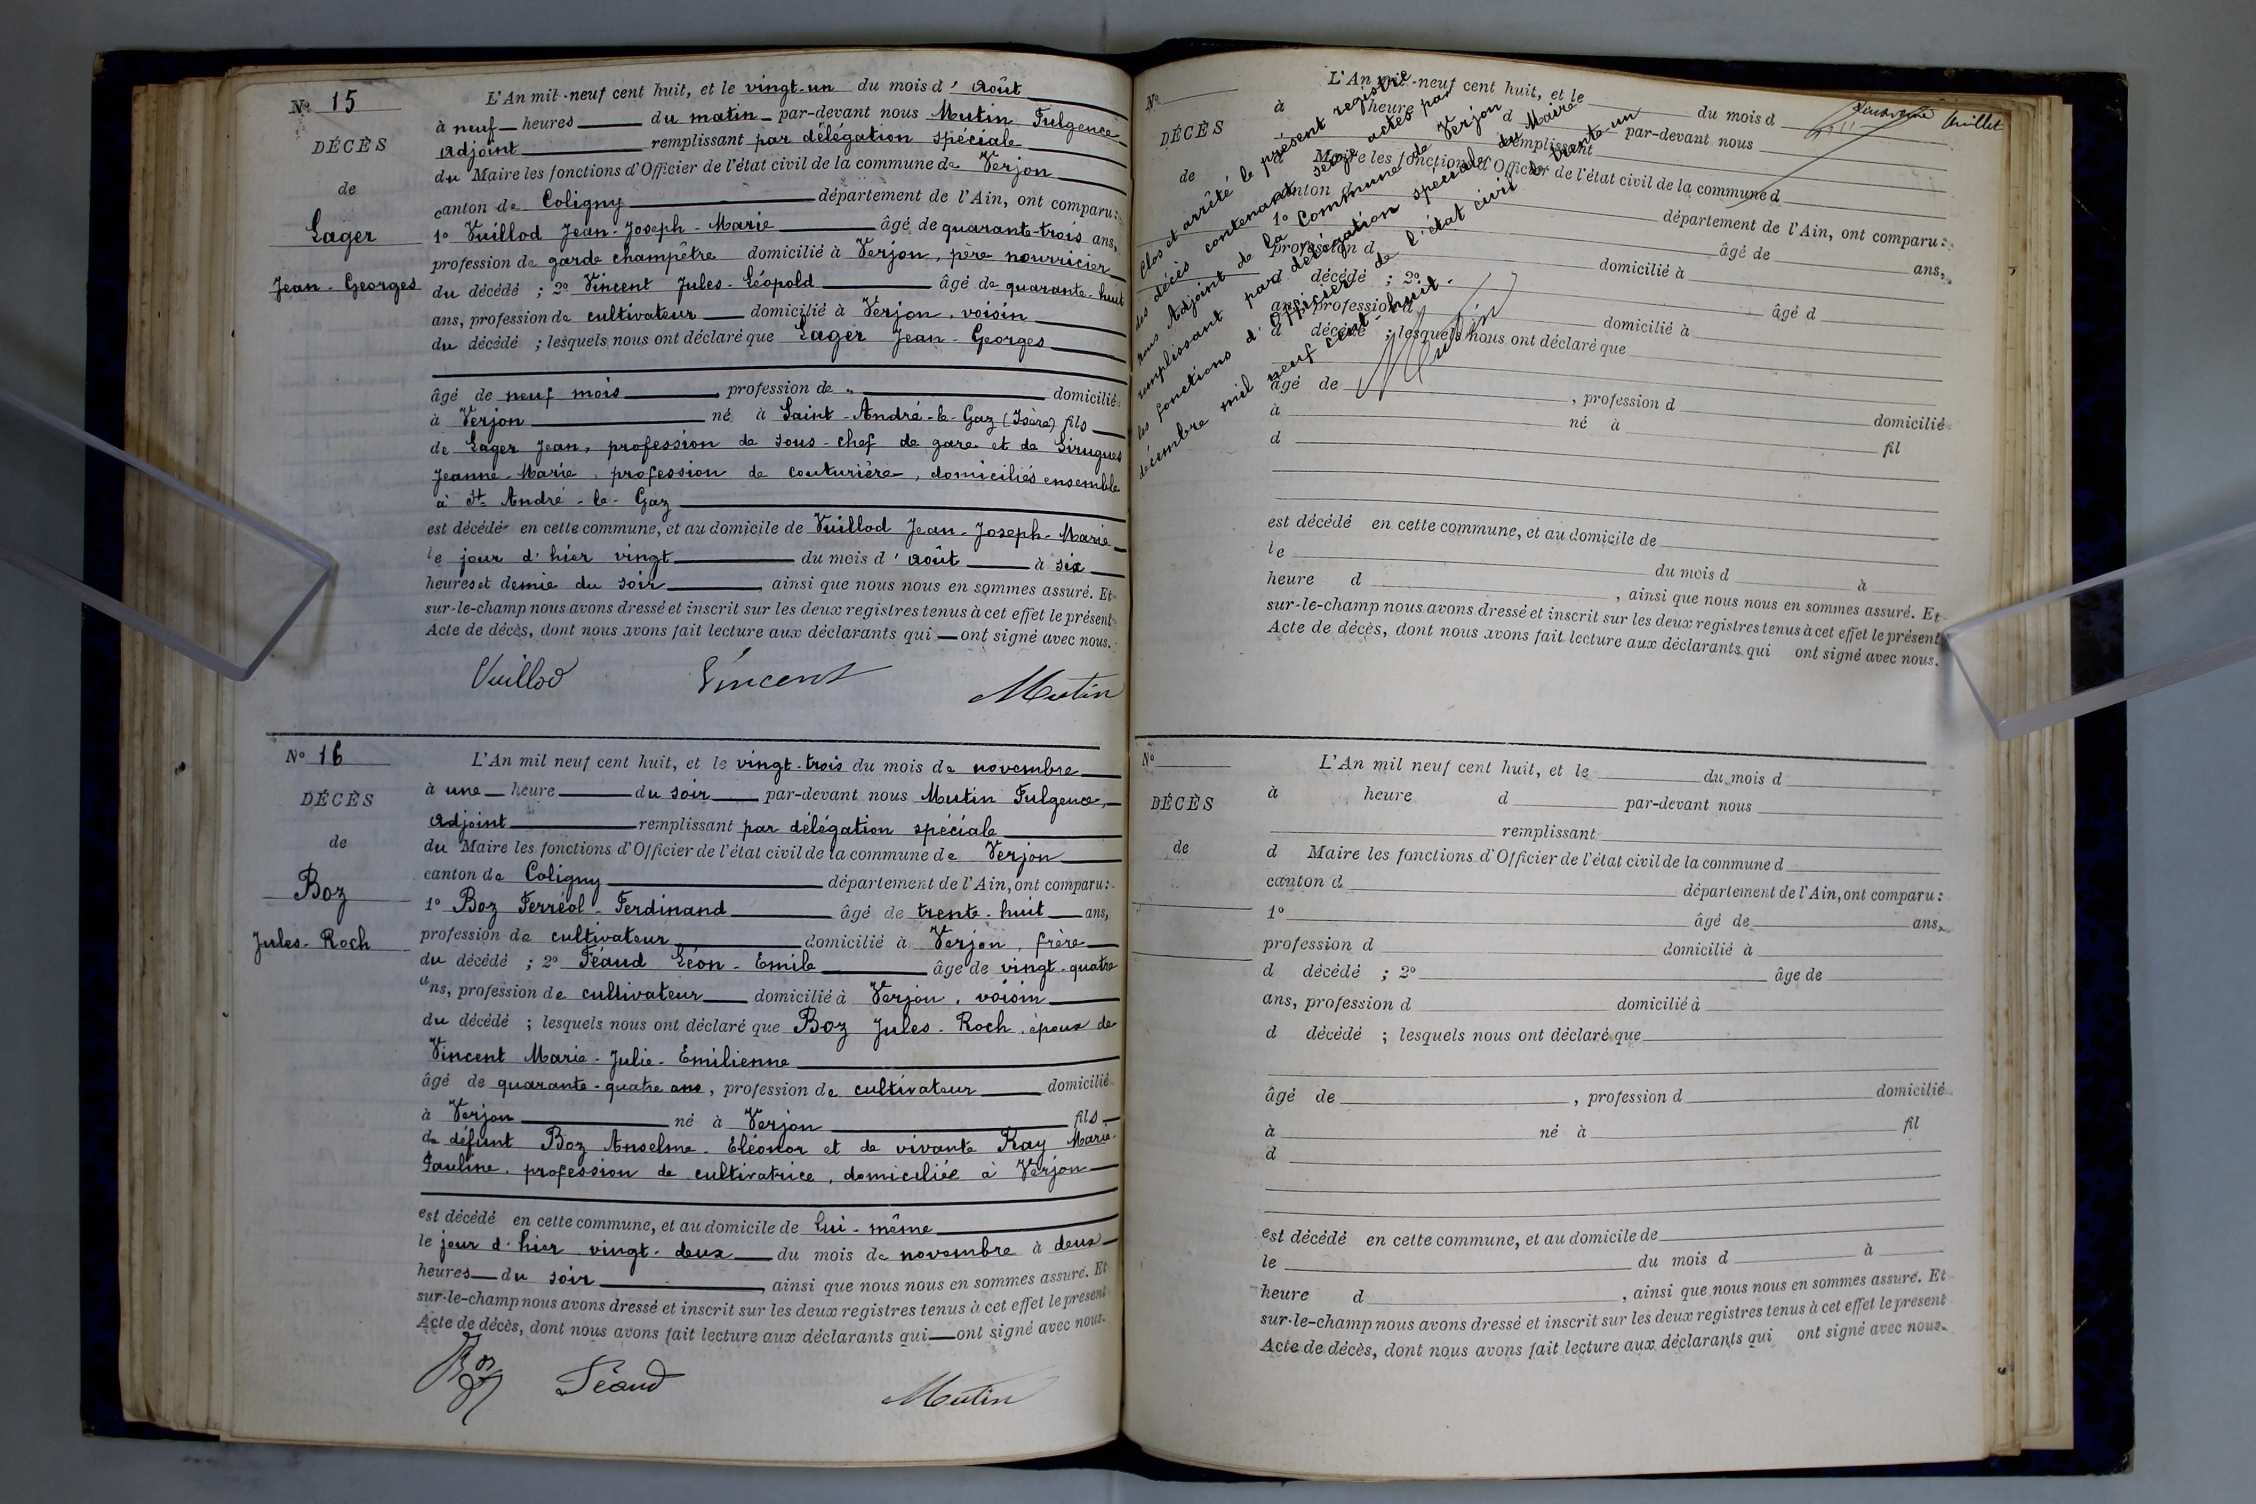 N° 15
DÉCÈS
de
Lager
Jean-Georges
L'An mil-neuf cent huit, et le vingt-un du mois d'Août
à neuf heures du matin par-devant nous Mutin Fulgence
Adjoint remplissant par délégation spéciale
du Maire les fonctions d'Officier de l'état civil de la commune de Verjon
canton de Coligny département de l'Ain, ont comparu:
1° Vuillod Jean-Joseph-Marie âgé de quarante-trois ans,
profession de garde champêtre domicilié à Verjon, père nourricier
du décédé ; 2° Vincent Jules-Léopold âgé de quarante-huit
ans, profession de cultivateur domicilié à Verjon, voisin
du décédé ; lesquels nous ont déclaré que Lager Jean-Georges
âgé de neuf mois, profession de " domicilié
à Verjon né à Saint-André-le-Gaz (Isère) fils
de Lager Jean, profession de sous-chef de gare et de Sirugues
Jeanne-Marie, profession de couturière, domiciliés ensemble
à St André-le-Gaz
est décédé en cette commune, et au domicile de Vuillod Jean-Joseph-Marie
le jour d'hier vingt du mois d'Août à six
heures et demie du soir, ainsi que nous nous en sommes assuré. Et
sur-le-champ nous avons dressé et inscrit sur les deux registres tenus à cet effet le présent
Acte de décès, dont nous avons fait lecture aux déclarants qui ont signé avec nous.
Vuillod Vincent Mutin
N° 16
DÉCÈS
de
Boz
Jules-Roch
L'An mil neuf cent huit, et le vingt-trois du mois de novembre
à une heure du soir par-devant nous Mutin Fulgence,
Adjoint remplissant par délégation spéciale
du Maire les fonctions d'Officier de l'état civil de la commune de Verjon
canton de Coligny département de l'Ain, ont comparu:
1° Boz Ferréol-Ferdinand âgé de trente-huit ans,
profession de cultivateur domicilié à Verjon, frère
du décédé ; 2° Féaud Léon-Emile âgé de vingt-quatre
ans, profession de cultivateur domicilié à Verjon, voisin
du décédé ; lesquels nous ont déclaré que Boz Jules-Roch, époux de
Vincent Marie-Julie-Emilienne
âgé de quarante-quatre ans, profession de cultivateur domicilié
à Verjon né à Verjon fils
de défunt Boz Anselme-Eléonor et de vivante Ray Marie-
Pauline, profession de cultivatrice, domiciliée à Verjon
est décédé en cette commune, et au domicile de lui-même
le jour d'hier vingt-deux du mois de novembre à deux
heures du soir, ainsi que nous nous en sommes assuré. Et
sur-le-champ nous avons dressé et inscrit sur les deux registres tenus à cet effet le présent
Acte de décès, dont nous avons fait lecture aux déclarants qui ont signé avec nous.
Boz Féaud Mutin
Vuillet
Clos et arrêté le présent registre
des décès contenant seize actes par
nous Adjoint de la Commune de Verjon
remplissant par délégation spéciale du Maire
les fonctions d'Officier de l'état civil le trente-un
décembre mil neuf cent huit.
Mutin
N°
DÉCÈS
de
L'An mil-neuf cent huit, et le du mois d
à heure d par-devant nous
remplissant
d Maire les fonctions d'Officier de l'état civil de la commune d
canton d département de l'Ain, ont comparu:
1° âgé de ans,
profession d domicilié à
d décédé ; 2° âgé d
ans, profession d domicilié à
d décédé ; lesquels nous ont déclaré que
âgé de , profession d domicilié
à né à fil
d
est décédé en cette commune, et au domicile de
le du mois d à
heure d , ainsi que nous nous en sommes assuré. Et
sur-le-champ nous avons dressé et inscrit sur les deux registres tenus à cet effet le présent
Acte de décès, dont nous avons fait lecture aux déclarants qui ont signé avec nous.
N°
DÉCÈS
de
L'An mil neuf cent huit, et le du mois d
à heure d par-devant nous
remplissant
d Maire les fonctions d'Officier de l'état civil de la commune d
canton d département de l'Ain, ont comparu:
1° âgé de ans,
profession d domicilié à
d décédé ; 2° âge de
ans, profession d domicilié à
d décédé ; lesquels nous ont déclaré que
âgé de , profession d domicilié
à né à fil
d
est décédé en cette commune, et au domicile de
le du mois d à
heure d , ainsi que nous nous en sommes assuré. Et
sur-le-champ nous avons dressé et inscrit sur les deux registres tenus à cet effet le présent
Acte de décès, dont nous avons fait lecture aux déclarants qui ont signé avec nous.